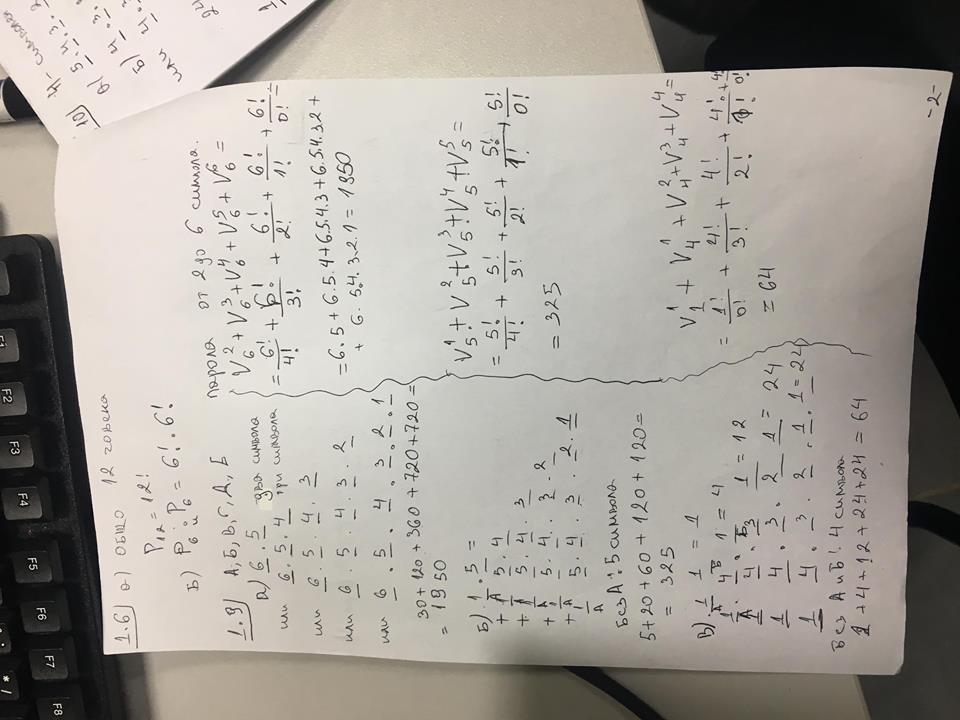 1.6) а) общо 12 човека
P₁₂ = 12!
Б) P₆ и P₆ = 6! . 6!
1.9) А, Б, В, Г, Д, Е
а) 6 . 5 два символа
или 6 . 5 . 4 три символа
или 6 . 5 . 4 . 3
или 6 . 5 . 4 . 3 . 2
или 6 . 5 . 4 . 3 . 2 . 1
30 + 120 + 360 + 720 + 720 =
= 1950
Б) 1 . 5 =
+ 1 5 . 4
А
+ 1 5 . 4 . 3
А
+ 1 5 . 4 . 3 . 2
А
+ 1 5 . 4 . 3 . 2 . 1
А
Без А: 5 символа
5 + 20 + 60 + 120 + 120 =
= 325
В) 1 1 = 1
А Б
1 . 4 . 1 = 4
А Б
1 4 . 3 1 = 12
1 4 . 3 . 2 1 = 24
1 4 . 3 . 2 . 1 . 1 = 24
Без А и Б: 4 символа
1 + 4 + 12 + 24 + 24 = 64
Парола от 2 до 6 символа.
V₆² + V₆³ + V₆⁴ + V₆⁵ + V₆⁶ =
= 6!/4! + 6!/3! + 6!/2! + 6!/1! + 6!/0! =
= 6.5 + 6.5.4 + 6.5.4.3 + 6.5.4.3.2 +
+ 6.5.4.3.2.1 = 1950
V₅¹ + V₅² + V₅³ + V₅⁴ + V₅⁵ =
= 5!/4! + 5!/3! + 5!/2! + 5!/1! + 5!/0!
= 325
V₁¹ + V₄¹ + V₄² + V₄³ + V₄⁴ =
= 1!/0! + 4!/3! + 4!/2! + 4!/1! + 4!/0!
= 64
-2-
10) 4 - символен
а) 5 . 4 . 3 . 2
Б) 4 . 3 .
или 4 . 3
24
1
F8 F7 F6 F5 F4 F3 F2 F1